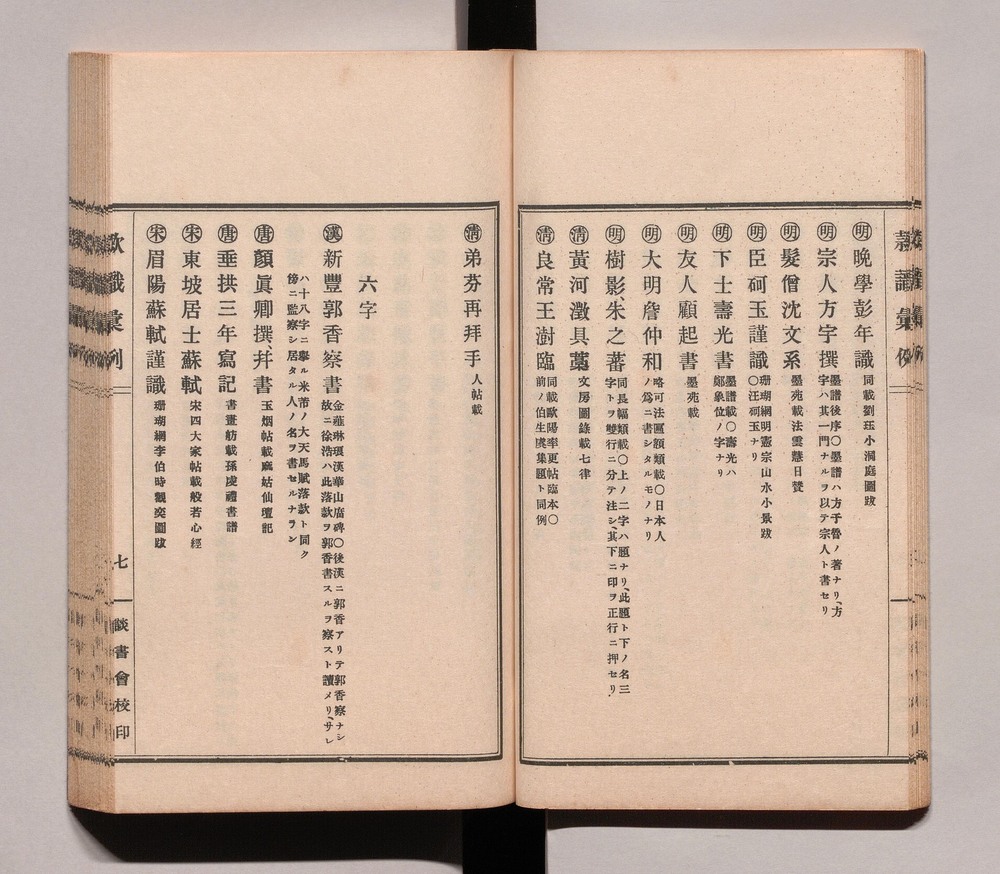 ㊔明 晚學彭年識 同載劉珏小洞庭圖跋
明 宗人方宇撰 墨譜後序〇墨譜ハ方于魯ノ著ナリ、方
宇ハ其一門ナルヲ以テ宗人ト書セリ
明 髮僧沈文系 墨苑載法雲慧日贊
明 臣砢玉謹識 珊瑚網明憲宗山水小景跋
〇汪砢玉ナリ
明 下士壽光書 墨譜載〇壽光ハ
鄭象位ノ字ナリ
明 友人顧起書 墨苑載
明 大明詹仲和 略可法匾額類載〇日本人
ノ爲ニ書シタルモノナリ
明 樹影、朱之蕃 同長幅類載〇上ノ二字ハ題ナリ、此題ト下ノ名三
字トヲ雙行ニ分テ注シ、其下ニ印ヲ正行ニ押セリ、
清 黃河澂具藁 文房圖錄載七律
清 良常王澍臨 同載歐陽率更帖臨本〇
前ノ伯生虞集題ト同例
清 弟芬再拜手 人帖載
六字
漢 新豐郭香察書 金薤琳琅漢華山廟碑〇後漢ニ郭香アリテ郭香察ナシ
故ニ徐浩ハ此落款ヲ郭香書スルヲ察スト讀メリ、サレ
ハ十八字ニ擧ル米芾ノ大天馬賦落款ト同ク
傍ニ監察シ居タル人ノ名ヲ書セルナラン
唐 顏眞卿撰、幷書 玉烟帖載麻姑仙壇記
唐 垂拱三年寫記 書畫舫載孫虔禮書譜
宋 東坡居士蘇軾 宋四大家帖載般若心經
宋 眉陽蘇軾謹識 珊瑚網李伯時觀奕圖跋
款識彙例
七
談書會校印